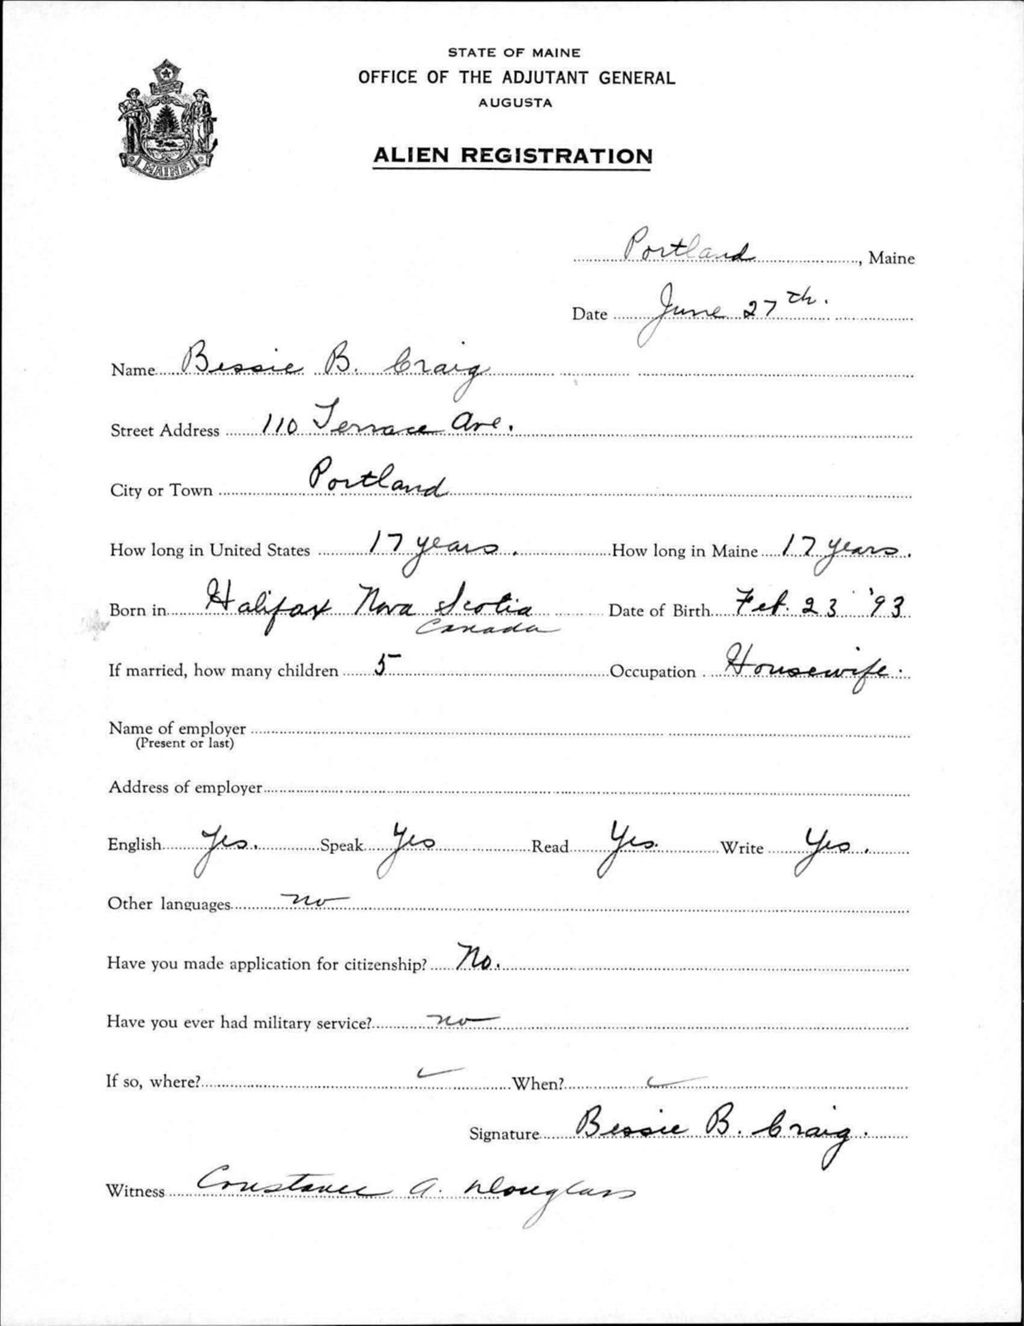 STATE OF MAINE
OFFICE OF THE ADJUTANT GENERAL
AUGUSTA
ALIEN REGISTRATION
MAINE
Portland, Maine
Date June 27th.
Name Bessie B. Craig
Street Address 110 Terrace Ave.
City or Town Portland
How long in United States 17 years. How long in Maine 17 years.
Born in Halifax Nova Scotia Date of Birth Feb. 23 '93
Canada
If married, how many children 5 Occupation Housewife.
Name of employer
(Present or last)
Address of employer
English Yes. Speak Yes Read Yes. Write Yes.
Other languages no
Have you made application for citizenship? No.
Have you ever had military service? no
If so, where? When?
Signature Bessie B. Craig.
Witness Constance A. Douglass